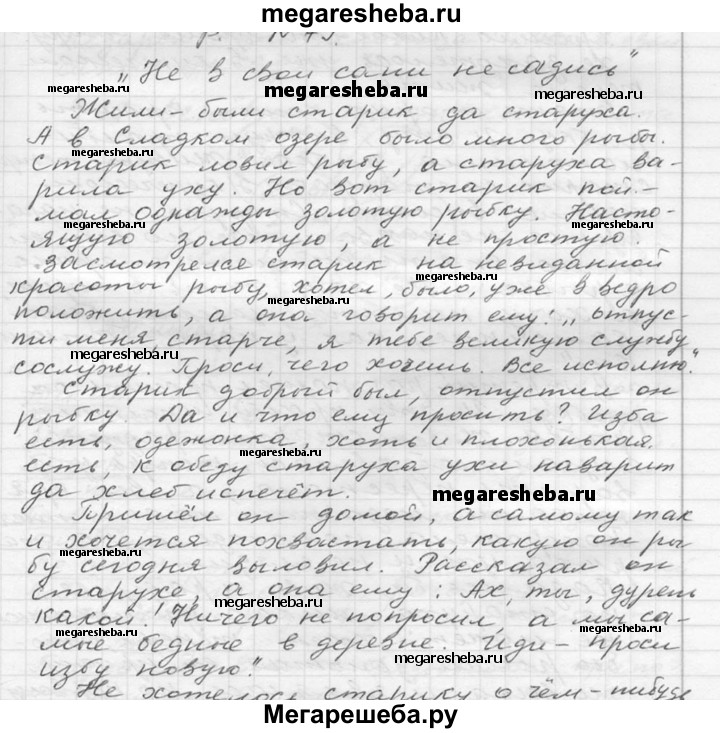 megaresheba.ru
р. N 75.
„Не в свои сани не садись"
megaresheba.ru
megaresheba.ru
megaresheba.ru
Жили-были старик да старуха.
А в Сладком озере было много рыбы.
megaresheba.ru
Старик ловил рыбу, а старуха ва-
рила уху. Но вот старик пой-
мал однажды золотую рыбку. Насто-
megaresheba.ru
megaresheba.ru
ящую золотую, а не простую.
Засмотрелся старик на невиданной
красоты рыбу, хотел, было, уже в ведро
положить, а она говорит ему: „Отпус-
ти меня, старче, я тебе великую службу
megaresheba.ru
сослужу. Проси, чего хочешь. Все исполню."
Старик добрый был, отпустил он
рыбку. Да и что ему просить? Изба
есть, одежонка, хоть и плохонькая
есть, к обеду старуха ухи наварит
да хлеб испечёт.
megaresheba.ru
Пришёл он домой, а самому так
и хочется похвастать, какую он ры-
megaresheba.ru
бу сегодня выловил. Рассказал он
старухе, а она ему: Ах, ты, дурень
megaresheba.ru
какой! Ничего не попросил, а мы са-
megaresheba.ru
megaresheba.ru
мые бедные в деревне. Иди - проси
megaresheba.ru
избу новую."
Не хотелось старику о чём-нибудь
Мегарешеба.ру